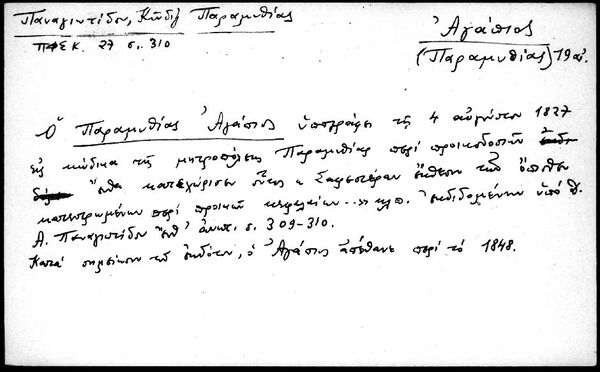 Παναγιωτίδου, Κῶδιξ Παραμυθίας
ΠΦΣΚ. 27 σ. 310
Ἀγάπιος
(Παραμυθίας) 19 αἰ.
Ὁ Παραμυθίας Ἀγάπιος ὑπογράφει τῇ 4 αὐγούστου 1827
εἰς κώδικα τῆς μητροπόλεως Παραμυθίας περὶ προικοδοτῶν
ἔνθα κατεχώρισεν οὗτος κ Σαφεστέραν ἔκθεσιν τῶν ὄπισθεν
κατεστρωμένων περὶ προικῶν κεφαλαίων...» κλπ. ἐκδιδομένην ὑπὸ
Α. Παναγιωτίδου ἐνθ' ἀνωτ. σ. 309-310.
Κατὰ σημείωσιν τοῦ ἐκδότου, ὁ Ἀγάπιος ἀπέθανε περὶ τὸ 1848.